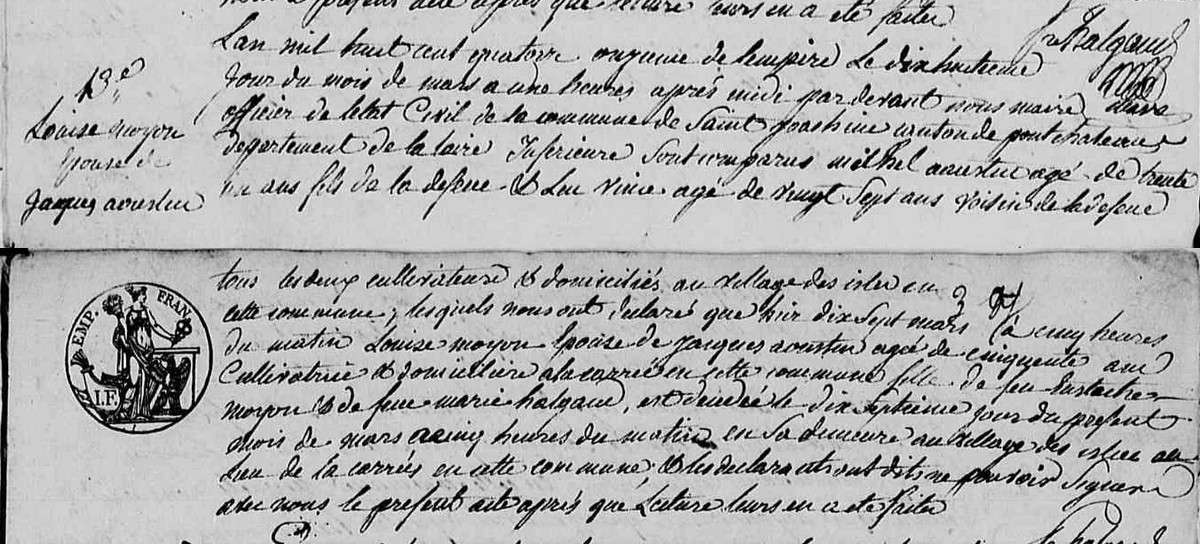 present acte après que lecture leurs en a eté faitte
f Halgand
13e
Louise moyon
Epouse de
Jacques aoustin
L'an mil huit cent quatorze onzieme de lempire Le dix huitieme
Jour du mois de mars a une heures aprés midi par devant nous maire
officier de letat Civil de la commune de Saint Joachim canton de pontchateau
departement de la loire Inferieure Sont comparus michel aoustin agé de trente
un ans fils de la defunte & Luc vince agé de vingt Sept ans voisin de la defunte
EMP. FRAN.
I.F.
tous les deux cultivateurs & domiciliés au village des isles en
cette commune, lesquels nous ont declaré que hier dix Sept mars à cinq heures
du matin Louise moyon Epouse de Jacques aoustin agée de cinquante ans
Cultivatrice & domiciliée a la carrée en cette commune fille de feu Eustache
moyon & de feue marie halgand, est decedée le dix Septieme jour du present
mois de mars a cinq heures du matin en Sa demeure au village des isles au
lieu de la carrée en cette commune, & les declarants ont dits ne pouvoir Signer
avec nous le present acte aprés que Lecture leurs en a eté faitte